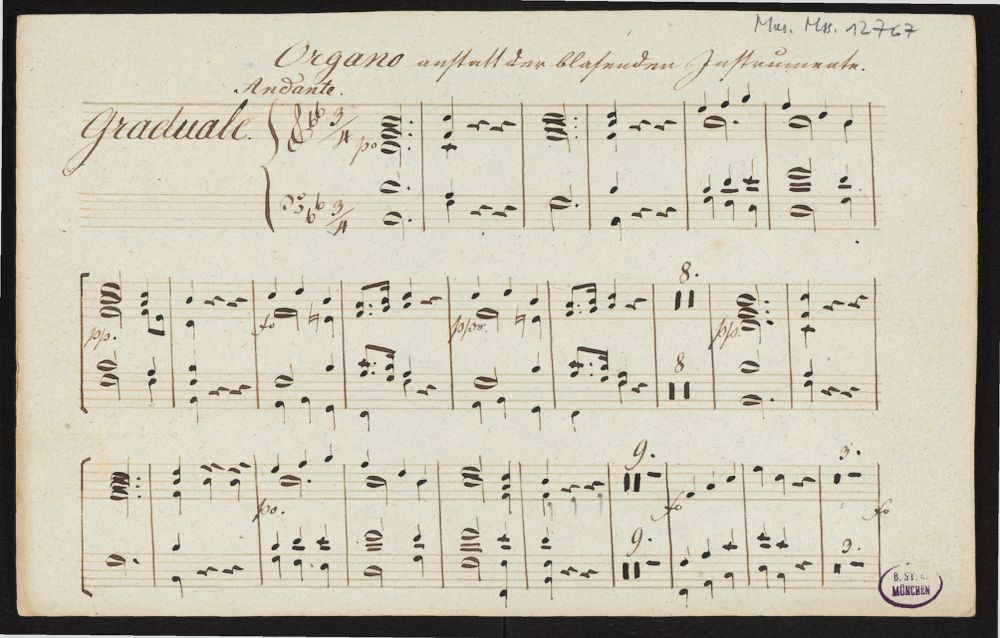 Mus. Mss. 12767
Organo anstatt der blasenden Instrumente.
Andante.
Graduale.
3/4
po
3/4
8.
pp.
fo
ppo.
pp.
8
9.
3.
po.
fo
fo
9.
3.
B. ST. B.
MÜNCHEN